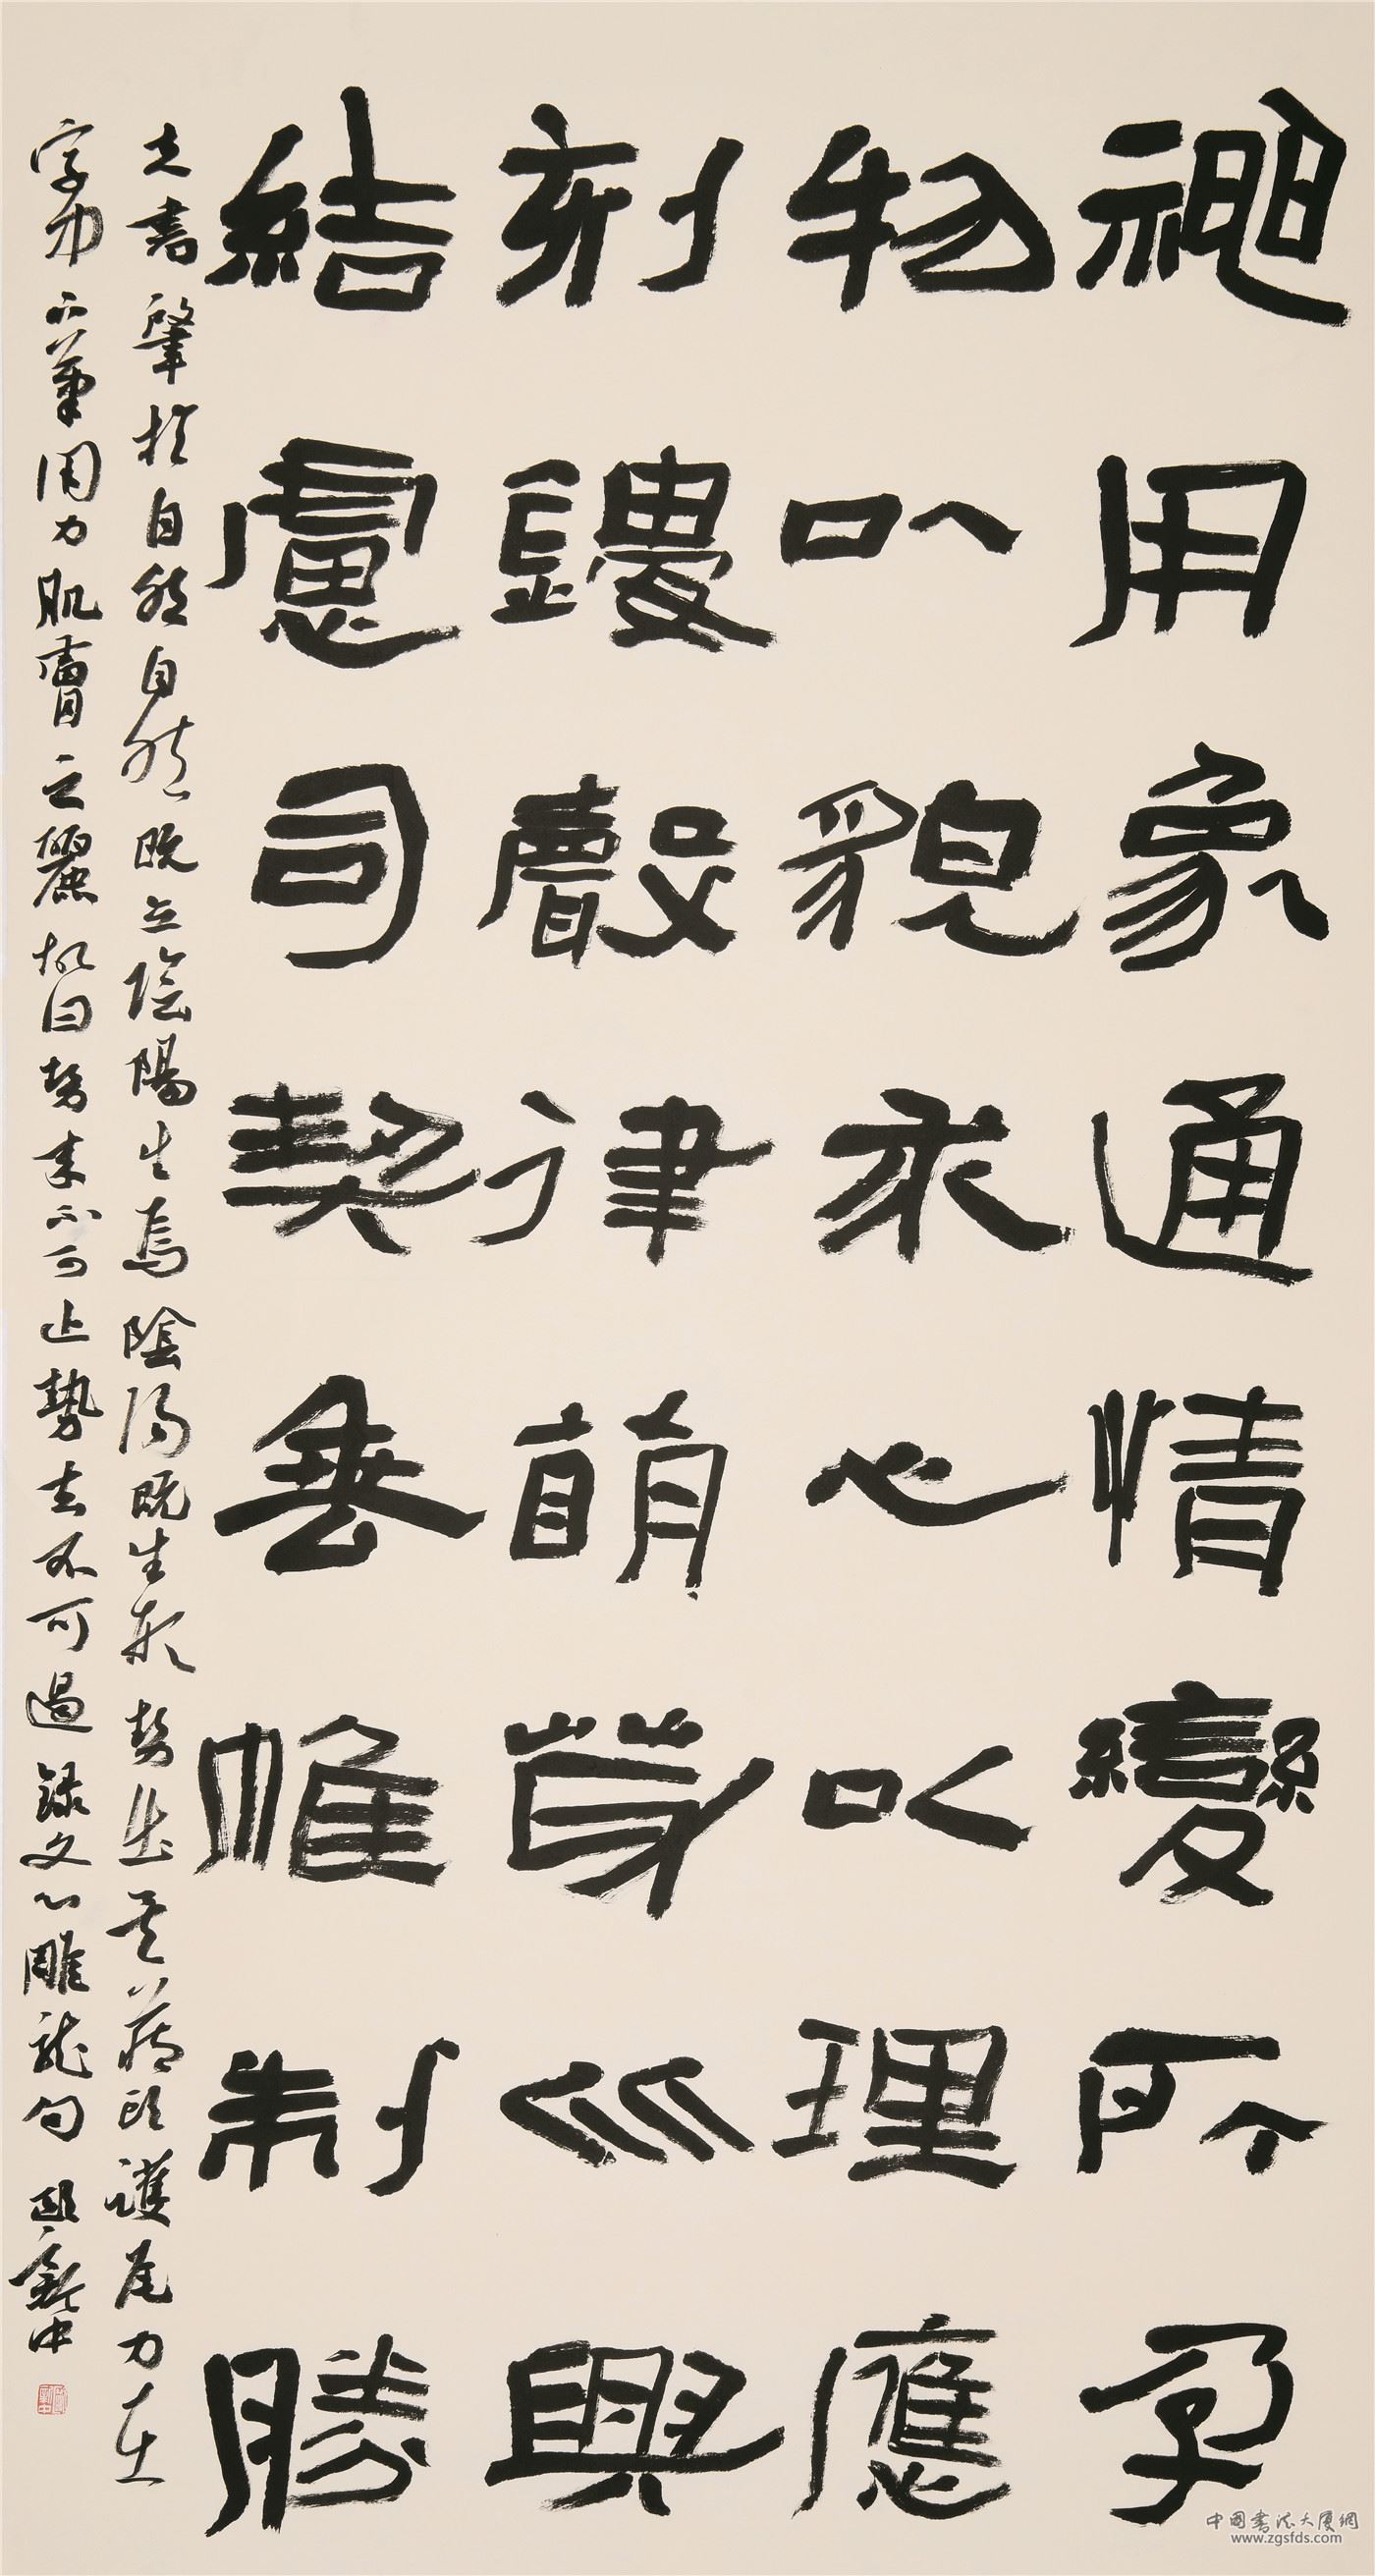 神用象通情變所孕
物以貌求心以理應
刻鏤聲律萌芽比興
結慮司契垂帷制勝
夫書肇於自然自然既立陰陽生焉陰陽既生形勢出矣藏頭護尾力在
字中下筆用力肌膚之麗故曰勢來不可止勢去不可遏錄文心雕龍句新中
中國書法大廈網
www.zgsfds.com